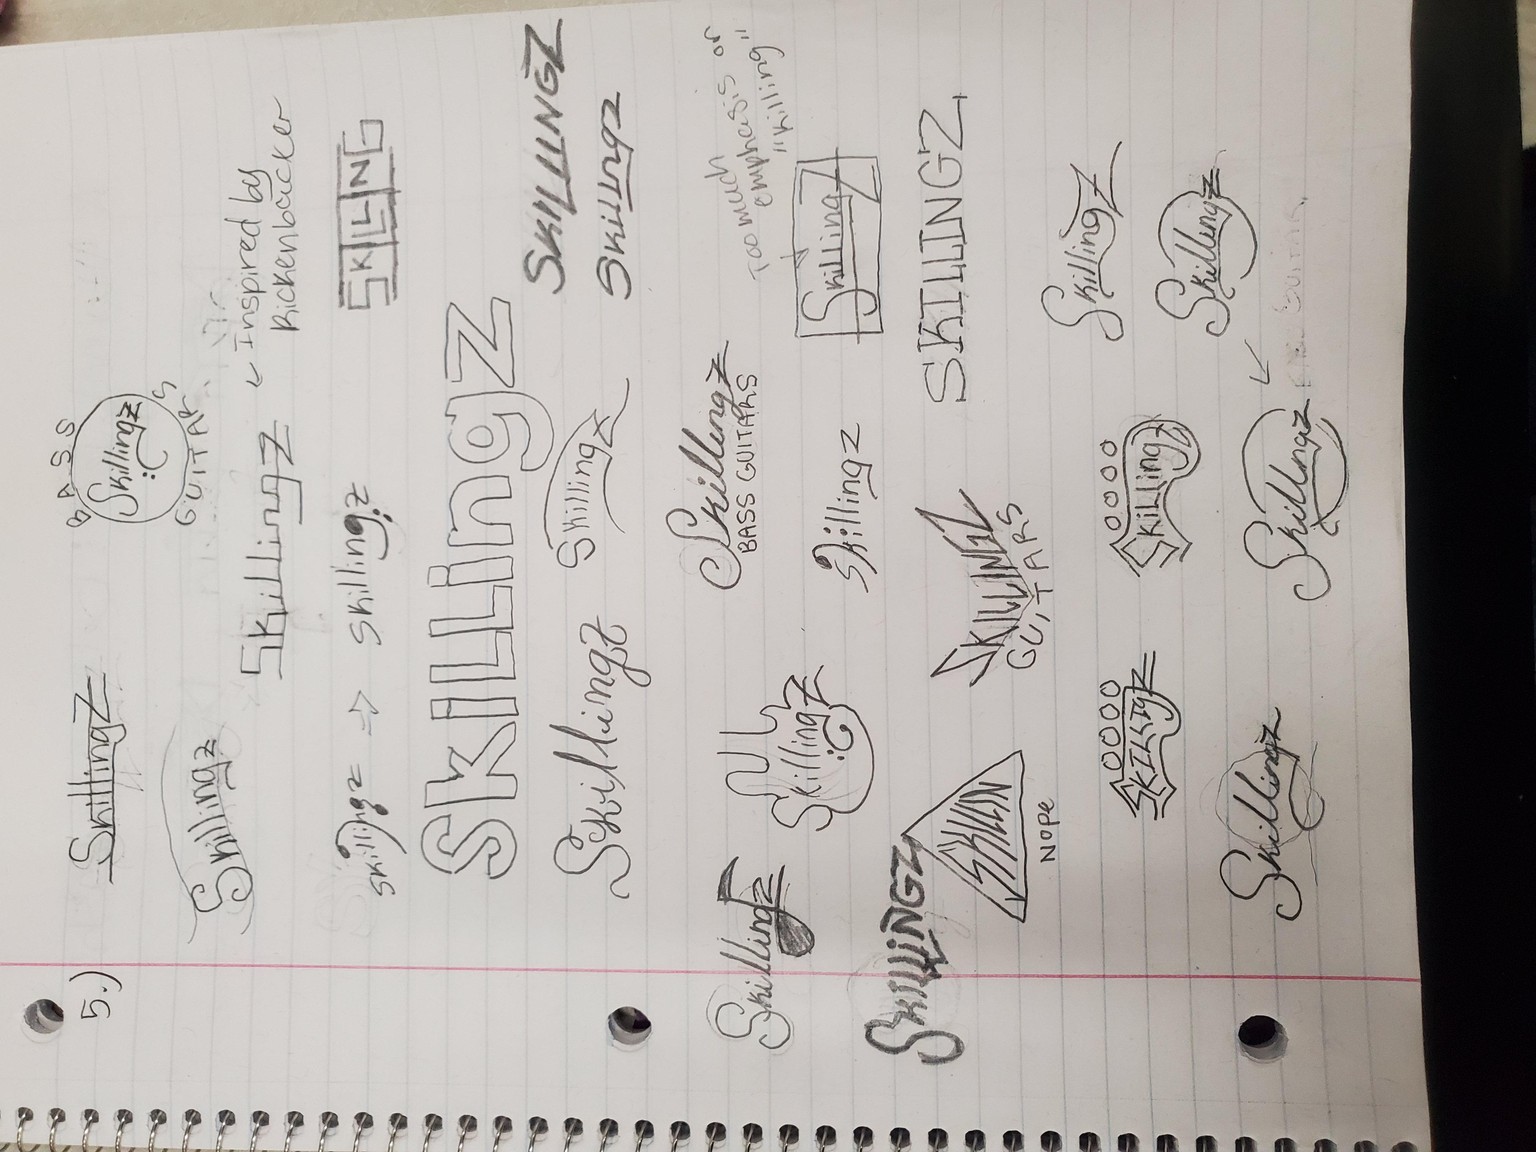 5.)
SkillingZ
BASS
Skillingz
GUITARS
Skillingz
SkillingZ
← Inspired by
Rickenbacker
skillingz → skillingz
SKILLNG
SkiLLingZ
SKILLINGZ
Skillingz
Skillingz
Skillingz
Too much
emphasis on
"killing"
Skillingz
Skillingz
Skillingz
BASS GUITARS
SkillingZ
SKILLINGZ
Skillingz
SKILLINGZ
SKILLIN
Nope
SKILLINZ
GUITARS
SkillingZ
Skillingz
Skilling
SkillingZ
Skillingz
Skillingz